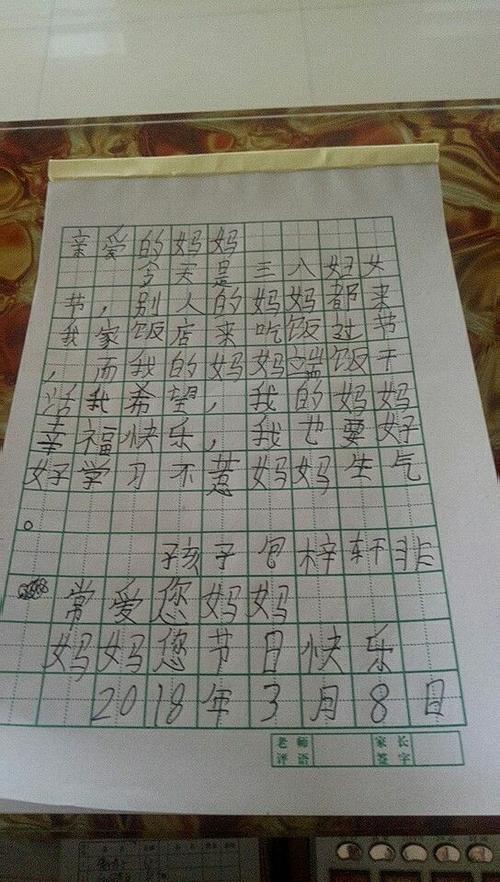 亲爱的妈妈
今天是三八妇女
节，别人的妈妈都来
我家饭店来吃饭过节
，而我的妈妈端饭干
活我希望，我的妈妈
幸福快乐，我也要好
好学习不惹妈妈生气
。
孩子包梓轩非
常爱您妈妈
妈妈您节日快乐
2018年3月8日
老师评语
家长签字